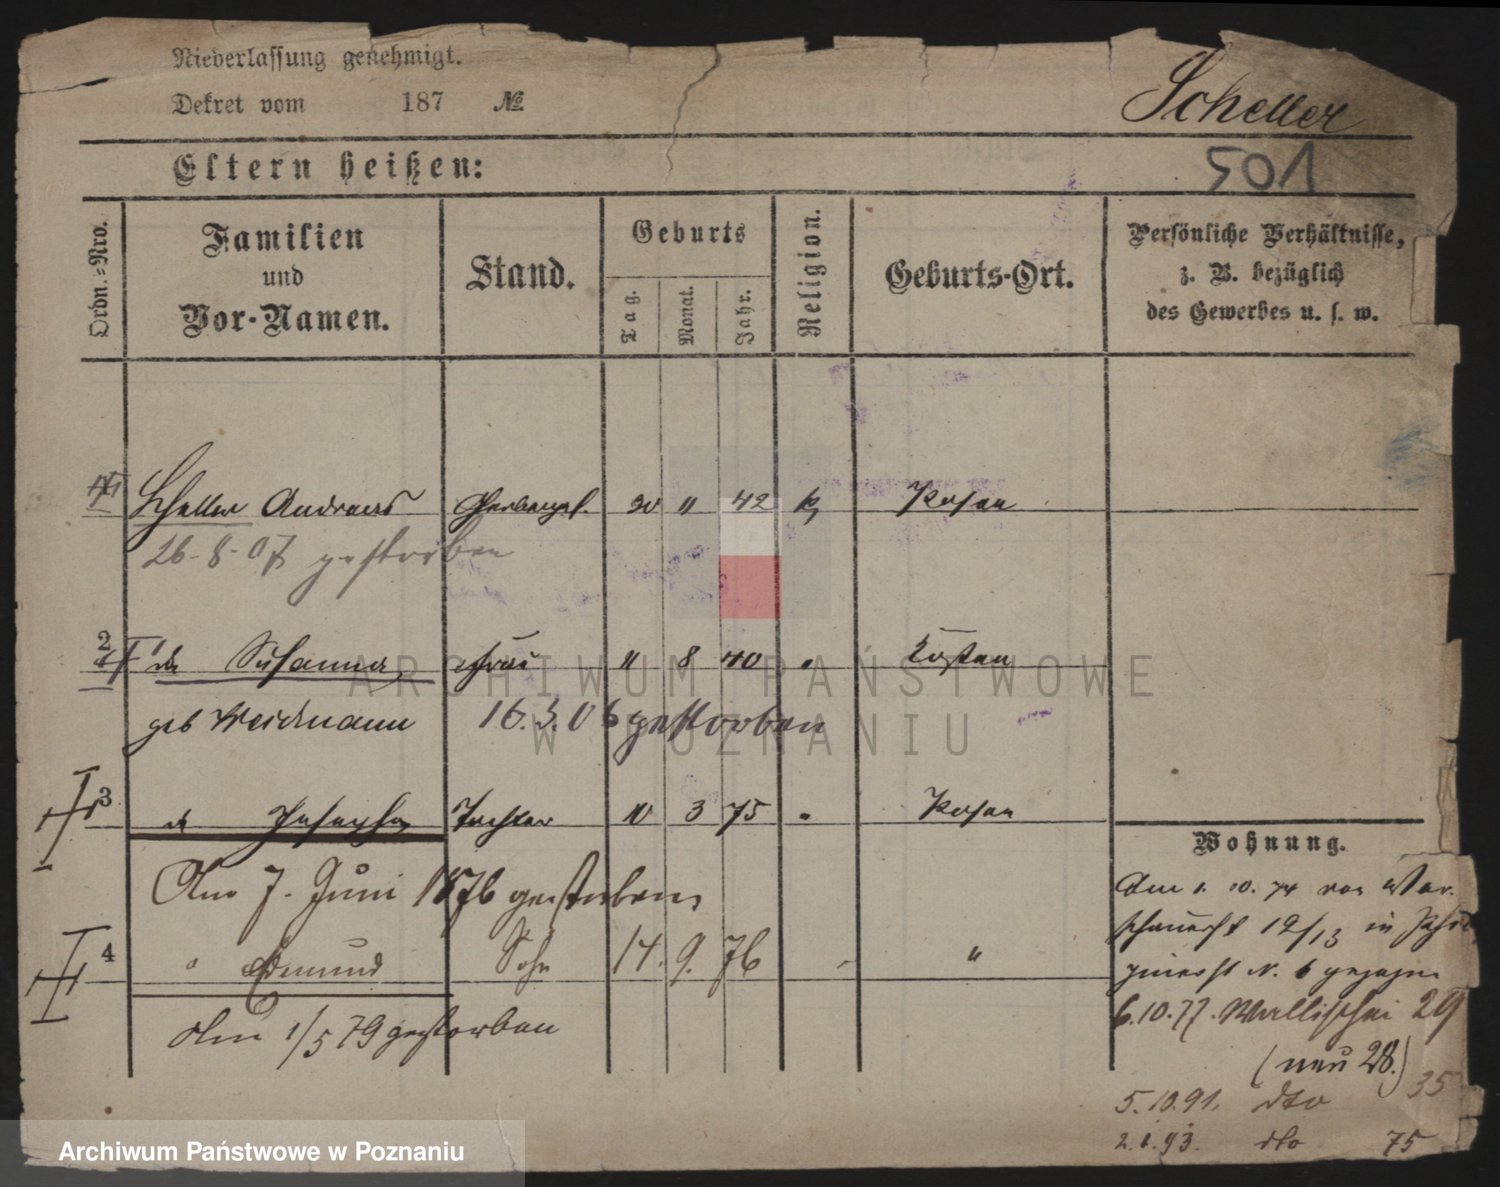 Niederlassung genehmigt.
Dekret vom 187 №
Scheller
501
Eltern heißen:
Ordn.-Nro.
Familien
und
Vor-Namen.
Stand.
Geburts
Tag.
Monat.
Jahr.
Religion.
Geburts-Ort.
Persönliche Verhältnisse,
z. B. bezüglich
des Gewerbes u. s. w.
Scheller Andreas 30 " 42 k Posen
26-8-07 gestorben
2 do Susanna Frau " 8 40 " Kosten
geb Weidmann 16.3.06 gestorben
3 do Josepha Tochter 10 3 75 " Posen
Am 7. Juni 1876 gestorben
4 " Edmund Sohn 14. 9. 76 "
Am 1/5 79 gestorben
Wohnung.
Am 1. 10. 74 von War-
schauerst 12/13 in
N. 6 gezogen
6.10.77. Wallischei 29
(neu 28.)
5.10.91. dto 35
dto 75
ARCHIWUM PAŃSTWOWE
W POZNANIU
Archiwum Państwowe w Poznaniu